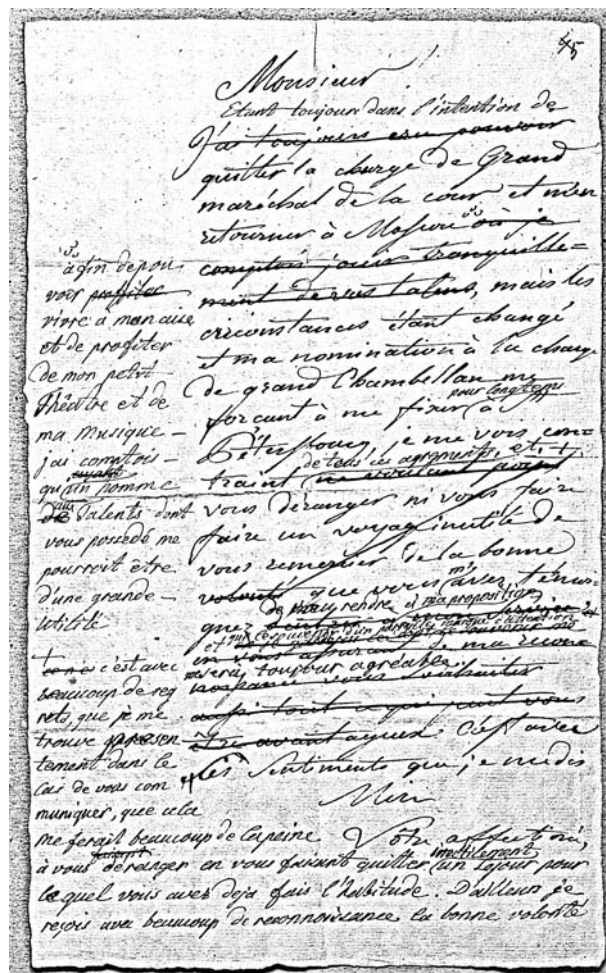 45
Monsieur
Etant toujour dans l'intention de
J'ai toujours cru pouvoir
quitter la charge de Grand
maréchal de la cour et m'en
retourner à Moscou où je
comptois jouir tranquille=
ment de vos talens, mais les
circonstances étant changé
et ma nomination à la charge
de grand Chambellan me
pour longtems
forcant à me fixer à
je me vois con-
de tous ces agréments, et +
traint ne voulant point
vous déranger ni vous faire
faire un voyage inutile de
vous remercier de la bonne
volonté que vous m'avez témoi-
de vous rendre à ma proposition
gnez
et
en vous assurant
me sera toujour agréable.
ma recon-
noissance vous souhaiter
aussi tout ce qui peut vous
être avantageux. C'est avec
les sentiments que je me dis
Mon
Vôtre affectioné,
afin de pou
voir profiter
vivre à mon aise
et de profiter
de mon petit
Théatre et de
ma Musique —
j'ai comptois —
ayant
qu'un homme
des Talents dont
vous possedé me
pourroit être
d'une grande —
utilité
+
c'est avec
beaucoup de reg
rets, que je me
trouve apresen
tement dans le
cas de vous com
muniquer, que cela
me ferait beaucoup de la peine
à vous deranger en vous faisant quitter inutilement un sejour pour
lequel vous avez deja fais l'habitude. D'allieur je
reçois avec beaucoup de reconnoissance la bonne volonté